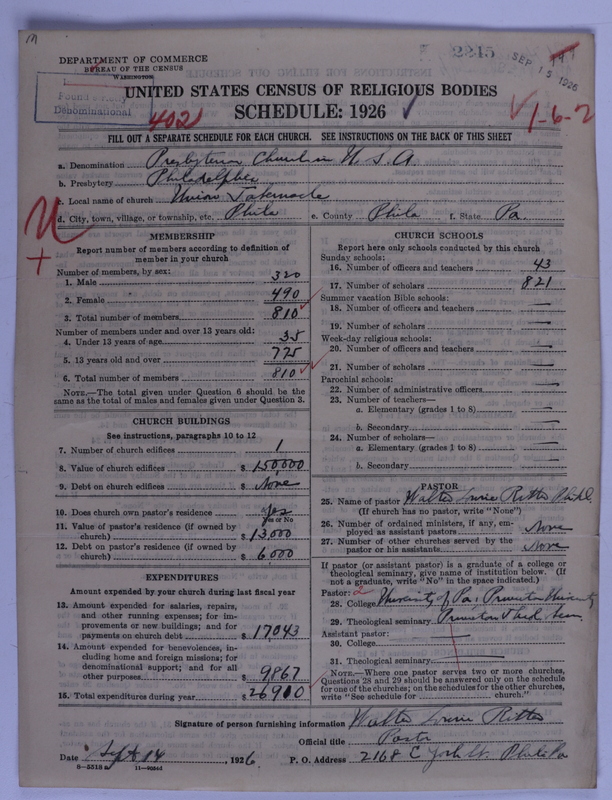 DEPARTMENT OF COMMERCE
BUREAU OF THE CENSUS
WASHINGTON
2245
SEP 15 1926
Denominational
4021
1-6-2
UNITED STATES CENSUS OF RELIGIOUS BODIES
SCHEDULE: 1926
FILL OUT A SEPARATE SCHEDULE FOR EACH CHURCH. SEE INSTRUCTIONS ON THE BACK OF THIS SHEET
a. Denomination Presbyterian Church in U. S. A.
b. Presbytery Philadelphia
c. Local name of church Union Tabernacle
d. City, town, village, or township, etc. Phila e. County Phila f. State Pa.
MEMBERSHIP
Report number of members according to definition of member in your church
Number of members, by sex:
1. Male 320
2. Female 490
3. Total number of members 810
Number of members under and over 13 years old:
4. Under 13 years of age 35
5. 13 years old and over 775
6. Total number of members 810
NOTE.—The total given under Question 6 should be the same as the total of males and females given under Question 3.
CHURCH BUILDINGS
See instructions, paragraphs 10 to 12
7. Number of church edifices 1
8. Value of church edifices $ 150,000
9. Debt on church edifices $ None
10. Does church own pastor's residence? Yes
Yes or No
11. Value of pastor's residence (if owned by
church) $ 13,000
12. Debt on pastor's residence (if owned by
church) $ 6,000
EXPENDITURES
Amount expended by your church during last fiscal year
13. Amount expended for salaries, repairs,
and other running expenses; for im-
provements or new buildings; and for
payments on church debt $ 17043
14. Amount expended for benevolences, in-
cluding home and foreign missions; for
denominational support; and for all
other purposes $ 9,867
15. Total expenditures during year $ 26910
CHURCH SCHOOLS
Report here only schools conducted by this church
Sunday schools:
16. Number of officers and teachers 43
17. Number of scholars 821
Summer vacation Bible schools:
18. Number of officers and teachers —
19. Number of scholars —
Week-day religious schools:
20. Number of officers and teachers —
21. Number of scholars —
Parochial schools:
22. Number of administrative officers —
23. Number of teachers—
a. Elementary (grades 1 to 8) —
b. Secondary —
24. Number of scholars—
a. Elementary (grades 1 to 8) —
b. Secondary —
PASTOR
25. Name of pastor Walter Ritter
(If church has no pastor, write "None")
26. Number of ordained ministers, if any, em-
ployed as assistant pastors None
27. Number of other churches served by the
pastor or his assistants None
If pastor (or assistant pastor) is a graduate of a college or
theological seminary, give name of institution below. (If
not a graduate, write "No" in the space indicated.)
Pastor: 2
28. College University of Pa, Princeton University
29. Theological seminary Princeton Theol. Sem
Assistant pastor:
30. College —
31. Theological seminary —
NOTE.—Where one pastor serves two or more churches,
Questions 28 and 29 should be answered only on the schedule
for one of the churches; on the schedules for the other churches,
write "See schedule for church."
Signature of person furnishing information Walter Ritter
Official title Pastor
Date Sept 14, 1926 P. O. Address 2168 E York St. Phila Pa
8—5518a 11—9056d